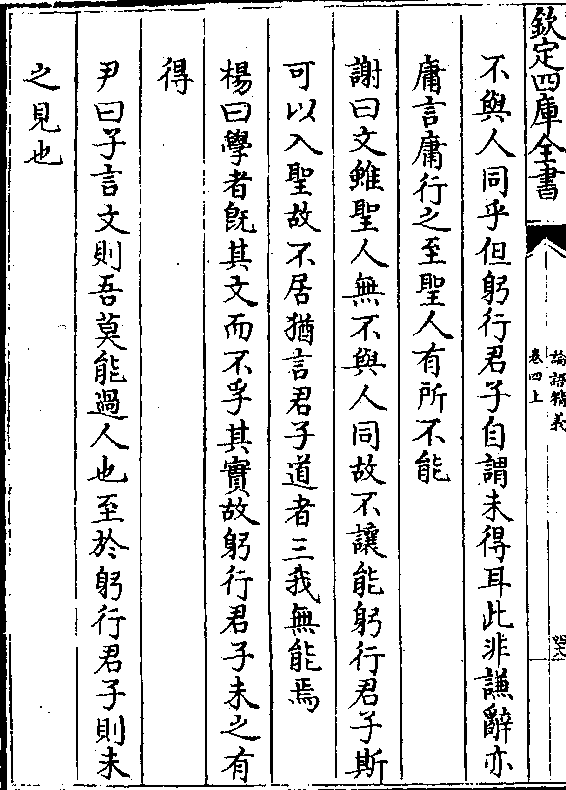 欽定四庫全書
論語精義
卷四上
不與人同乎但躬行君子自謂未得耳此非謙辭亦
庸言庸行之至聖人有所不能
謝曰文雖聖人無不與人同故不讓能躬行君子斯
可以入聖故不居猶言君子道者三我無能焉
楊曰學者旣其文而不孚其實故躬行君子未之有
得
尹曰子言文則吾莫能過人也至於躬行君子則未
之見也